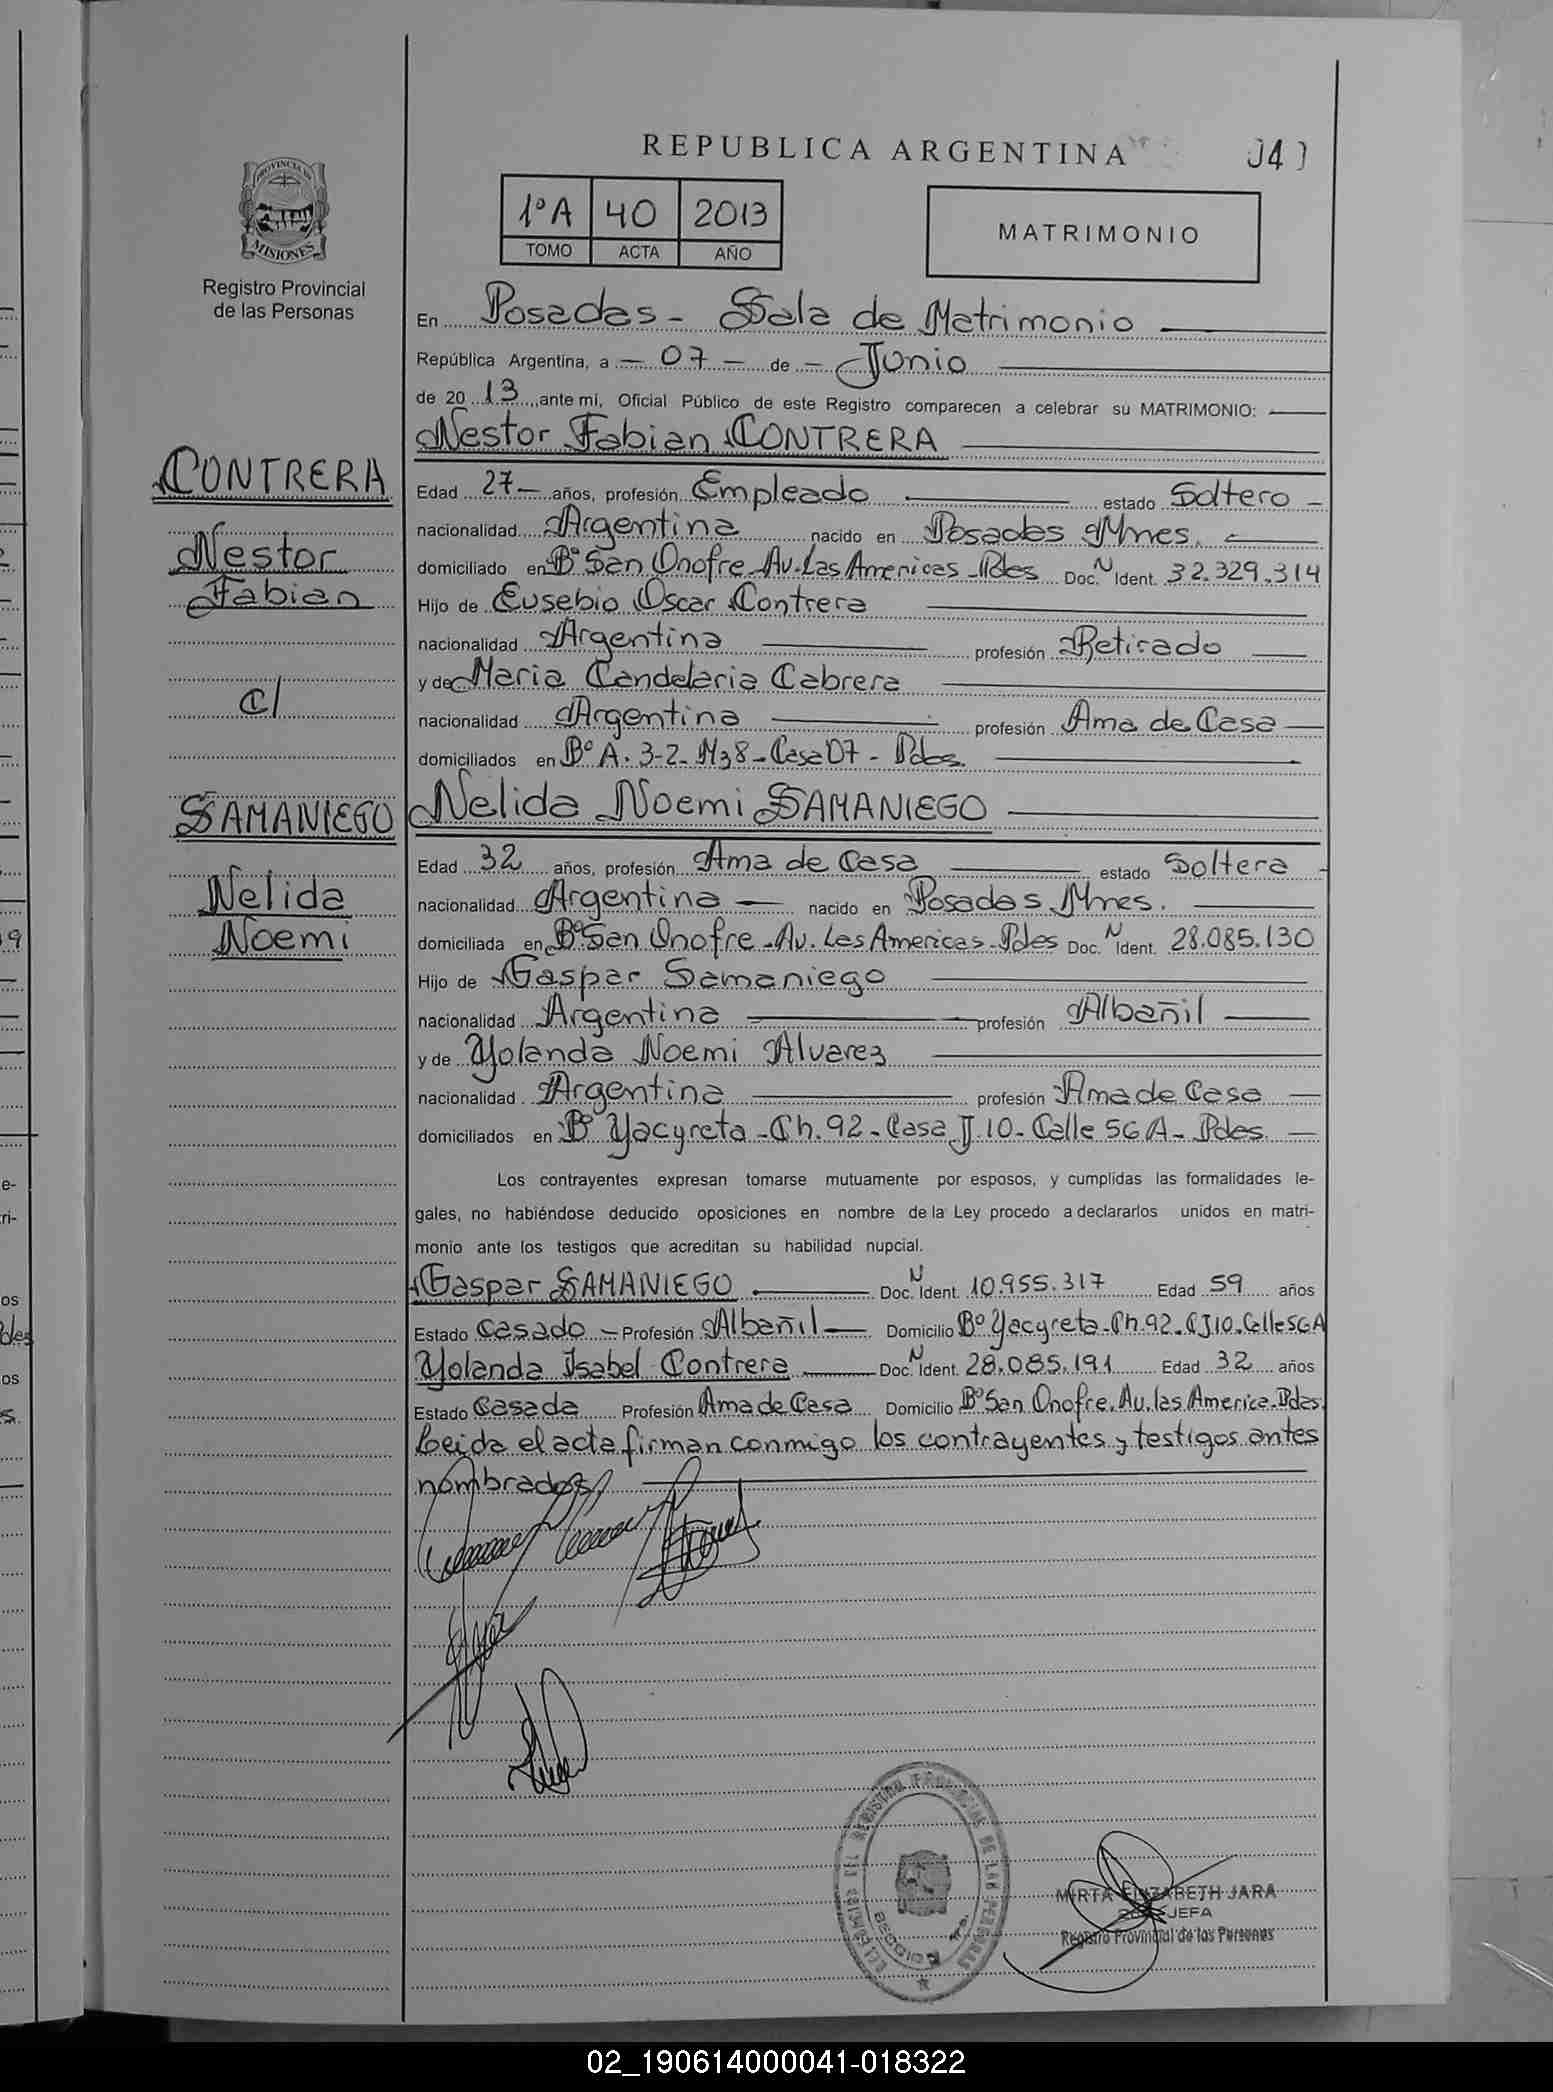 REPUBLICA ARGENTINA
PROVINCIA DE
MISIONES
Registro Provincial
de las Personas
1º A 40 2013
TOMO ACTA AÑO
MATRIMONIO
En Posadas - Sala de Matrimonio
República Argentina, a - 07 - de - Junio
de 20 13 ante mí, Oficial Público de este Registro comparecen a celebrar su MATRIMONIO:
Nestor Fabian CONTRERA
CONTRERA
Nestor
Fabian
c/
SAMANIEGO
Nelida
Noemi
Edad 27 - años, profesión Empleado estado Soltero -
nacionalidad Argentina nacido en Posadas Mnes.
domiciliado en Bº San Onofre - Av. Las Americas - Pdes Doc. N Ident. 32.329.314
Hijo de Eusebio Oscar Contrera
nacionalidad Argentina profesión Retirado
y de Maria Candelaria Cabrera
nacionalidad Argentina profesión Ama de Casa
domiciliados en Bº A. 3-2- M38 - Casa 07 - Pdas.
Nelida Noemi SAMANIEGO
Edad 32 años, profesión Ama de Casa estado Soltera -
nacionalidad Argentina - nacido en Posadas Mnes.
domiciliada en Bº San Onofre - Av. Las Americas - Pdes Doc. N Ident. 28.085.130
Hijo de Gaspar Samaniego
nacionalidad Argentina profesión Albañil
y de Yolanda Noemi Alvarez
nacionalidad Argentina profesión Ama de Casa
domiciliados en Bº Yacyreta - Ch. 92 - Casa J 10 - Calle 56 A - Pdes.
Los contrayentes expresan tomarse mutuamente por esposos, y cumplidas las formalidades le-
gales, no habiéndose deducido oposiciones en nombre de la Ley procedo a declararlos unidos en matri-
monio ante los testigos que acreditan su habilidad nupcial.
Gaspar SAMANIEGO Doc. N Ident. 10.955.317 Edad 59 años
Estado Casado - Profesión Albañil - Domicilio Bº Yacyreta - Ch. 92 - CJ10 - Calle 56A
Yolanda Isabel Contrera Doc. N Ident. 28.085.191 Edad 32 años
Estado Casada Profesión Ama de Casa Domicilio Bº San Onofre. Av. las America - Pdas.
Leida el acta firman conmigo los contrayentes y testigos antes
nombrados
MIRTA ELIZABETH JARA
JEFA
Registro Provincial de las Personas
02_190614000041-018322